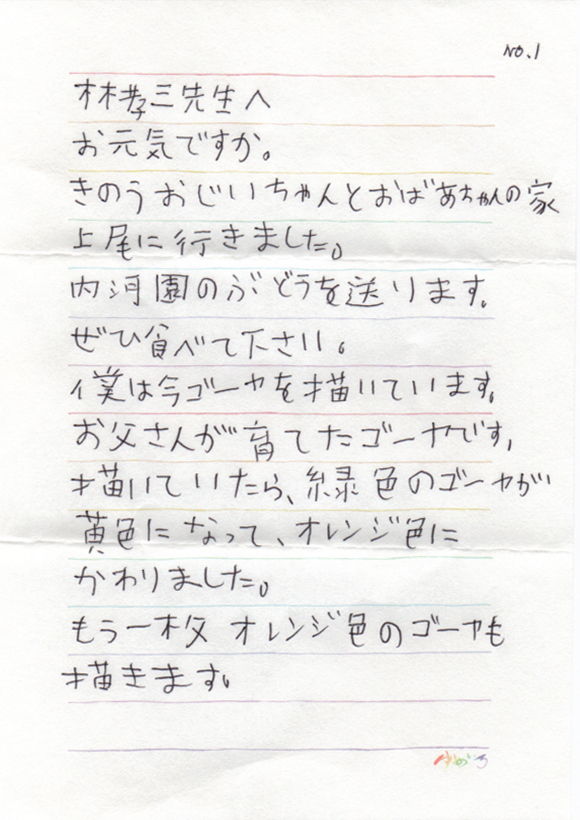 NO.1
林孝三先生へ
お元気ですか。
きのうおじいちゃんとおばあちゃんの家
上尾に行きました。
内河園のぶどうを送ります。
ぜひ食べて下さい。
僕は今ゴーヤを描いています。
お父さんが育てたゴーヤです。
描いていたら、緑色のゴーヤが
黄色になって、オレンジ色に
かわりました。
もう一枚 オレンジ色のゴーヤも
描きます。